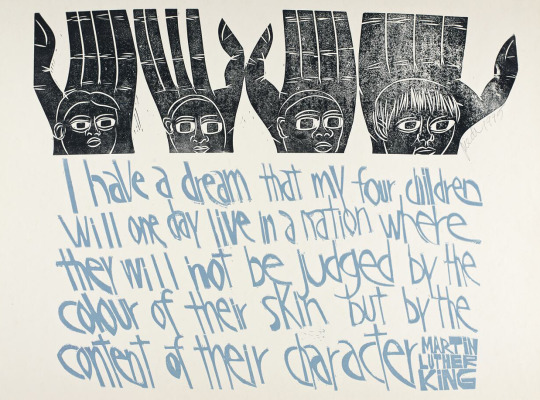 I have a dream that my four children
will one day live in a nation where
they will not be judged by the
colour of their skin but by the
content of their character
MARTIN
LUTHER
KING